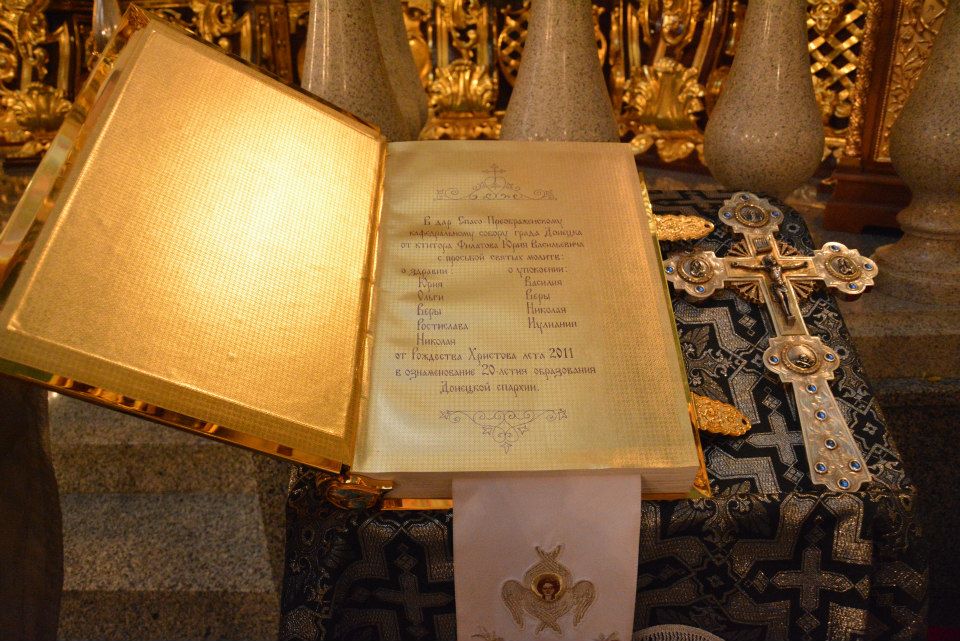 В дар Спасо-Преображенскому
кафедральному собору града Донецка
от ктитора Филатова Юрия Васильевича
с просьбой святых молитв:
о здравии: о упокоении:
Юрия Василия
Ольги Веры
Веры Николая
Ростислава Иулиании
Николая
от Рождества Христова лета 2011
в ознаменование 20-летия образования
Донецкой епархии.